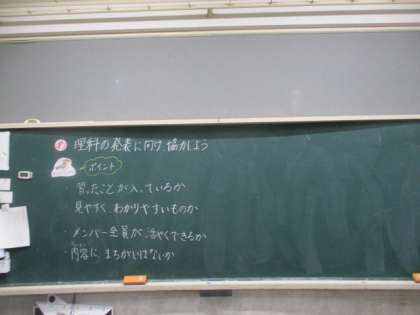 理科の発表に向け、協力しよう
ポイント
習ったことが入っているか
見やすく、わかりやすいものか
・メンバー全員が、活やくできるか
・内容に、まちがいはないか